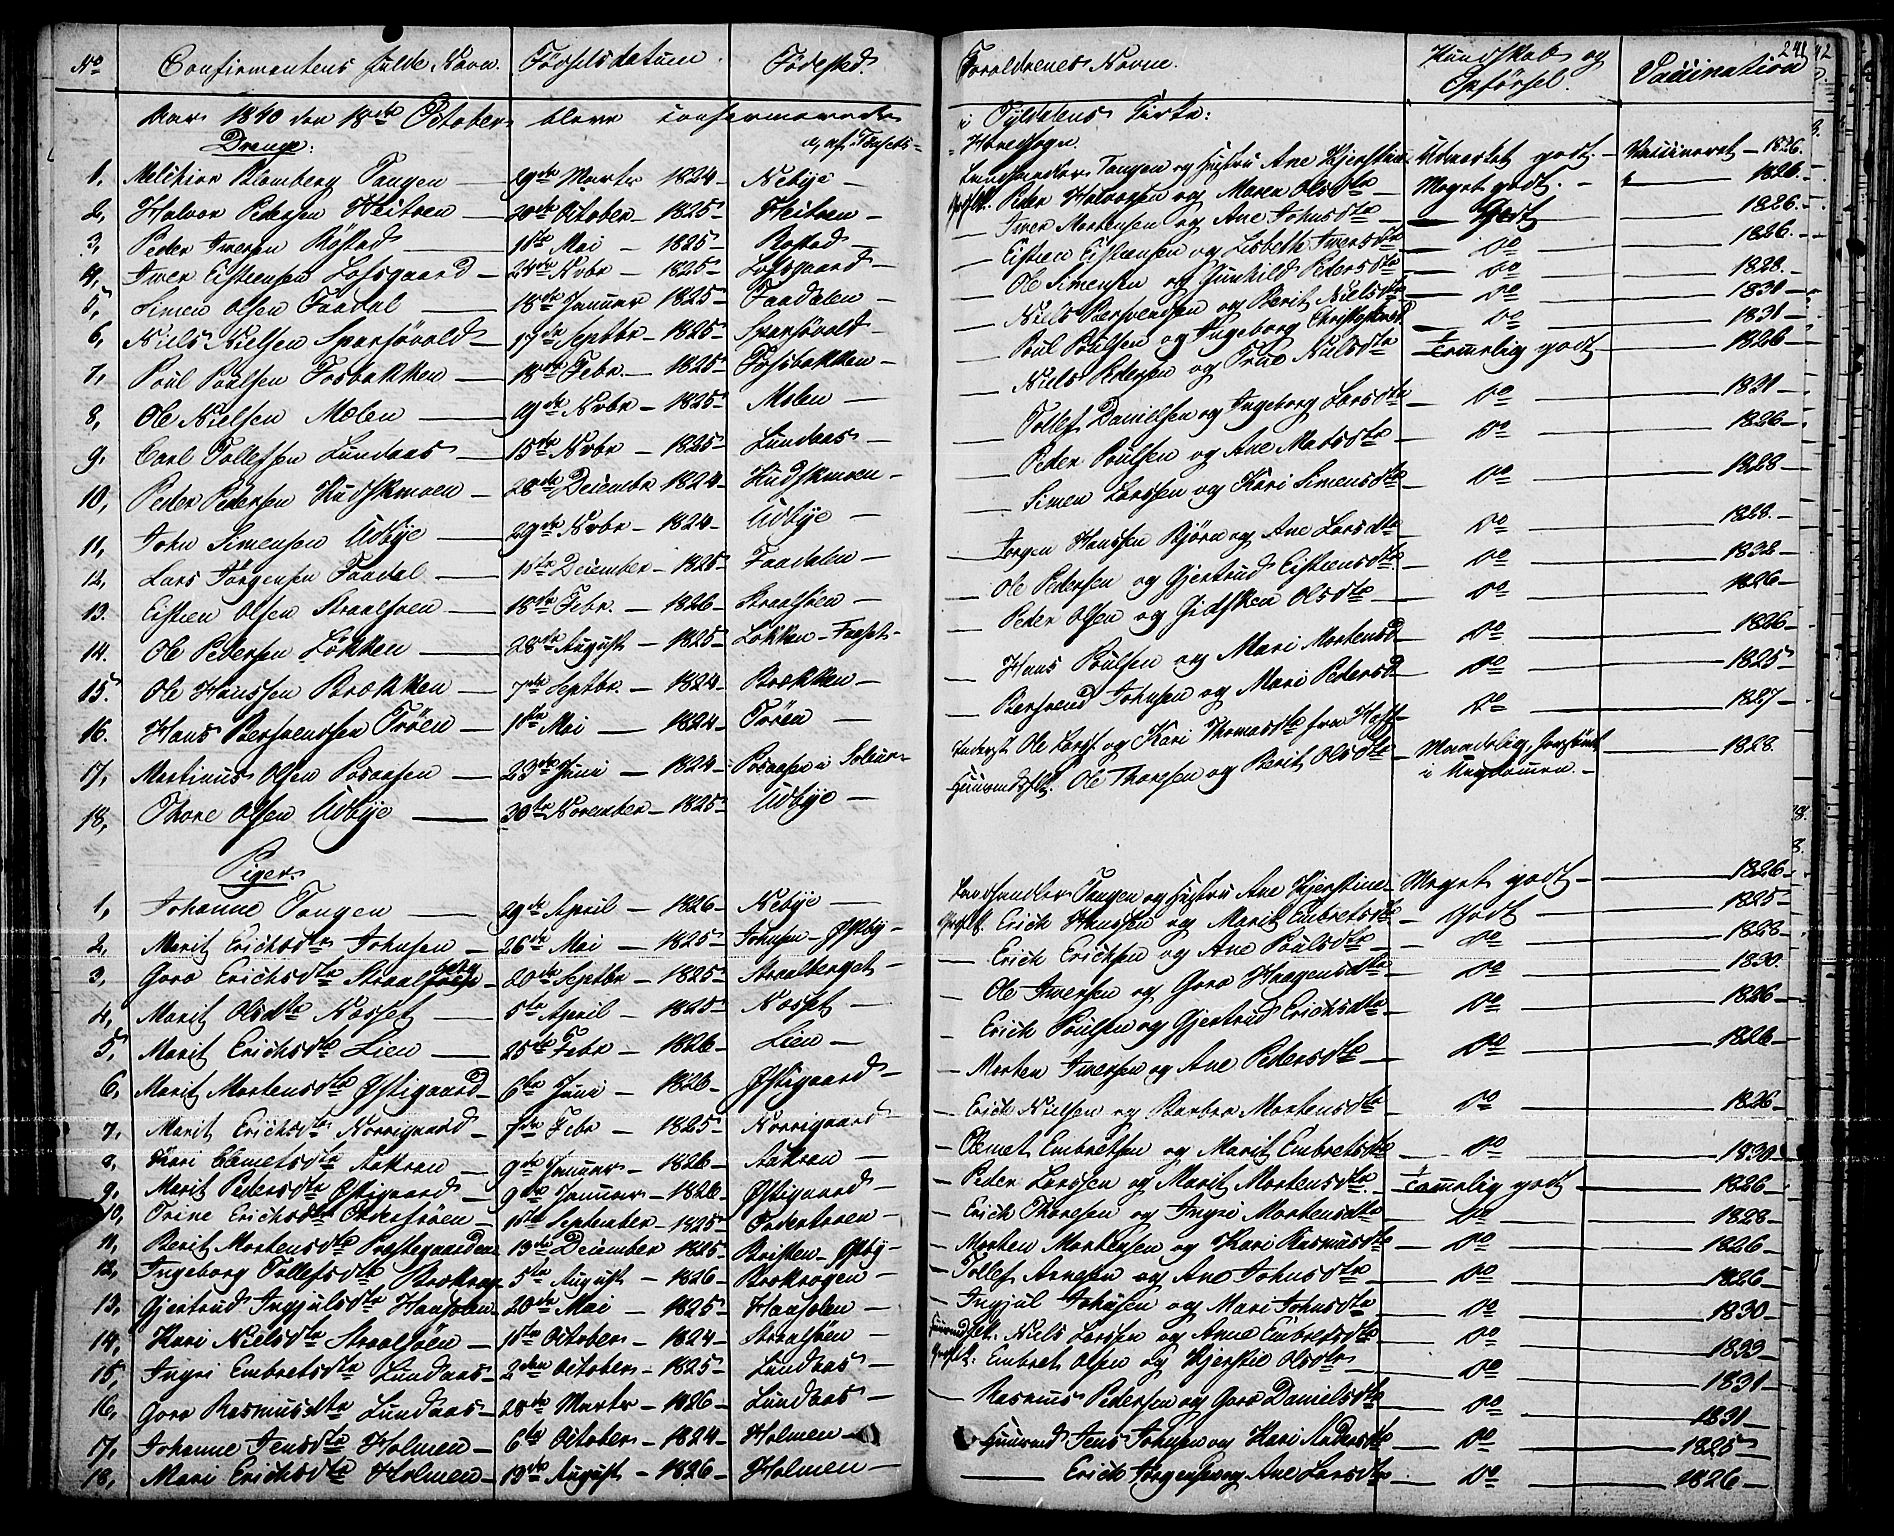 No Confirmantens fulde Navn. Födselsdatum Födested. Forældrenes Navne. Kundskab og Opførsel. Vaccination 241
Aar 1840 den 18de October bleve confirmerede i Tyldalens Kirke:
Drenge:
1, Melchior Blomberg Tangen — 29de Marts 1824 — Nebye — Landhandler Tangen og Hustru Ane Kjerstine — Udmærket godt. — Vaccineret — 1826.
2, Halvor Pedersen Heitren — 20de October — 1825 — Heitren — Peder Halvorsen og Maren Olsdtr — Meget godt. — 1826.
3, Peder Iversen Röstad — 1ste Mai — 1825 — Rostad — Iver Mortensen og Ane Johnsdtr — Godt — 1826.
4, Iver Eistensen Lofsgaard — 24de Nvbr — 1825 — Lofsgaard — Eistien Eistensen og Lisbeth Iversdtr — Do — 1826.
5, Simen Olsen Faadal — 18de Januar 1825 — Faadalen — Ole Simensen og Gunhild Pedersdtr — Do — 1828.
6, Niels Nielsen — 17de Septbr — 1825 — Niels og Berit Nielsdtr — Do — 1831 —
7, Poul Poulsen Fosbakken — 18de Febr. — 1825 — Fosbakken — Poul Poulsen og Ingeborg — Do — 1831
8, Ole Nielsen Moelen — Nvbr — 1825 — Moelen — Niels Pedersen og Nielsdtr — Temmelig godt — 1826 —
9. Carl Tollefsen Lundaas — 15de Nvbr — 1825 — Lundaas — Tollef Danielsen og Ingeborg Larsdtr — Do — 1831 —
10, Peder Pedersen Hudskmoen — 28de Decembr 1824 — Hudskmoen — Peder Poulsen og Ane Madsdtr — Do — 1826 —
11, John Simensen Udbye — 29de Nvbr — 1824 — Udbye — Simen Larssen og Kari Simensdtr — Do — 1828 —
12, Lars Jörgensen Faadal — 11te December — 1825 — Faadalen — Jörgen Hanssen Björn og Ane Larsdtr — Do — 1828.
13. Eistien Olsen Straalsöen — 18de Febr. — 1826 — Straalsöen — Ole Pedersen og Gjertrud Eistensdtr — Do — 1832 —
14. Ole Pedersen Lökken — 28de August — 1825 — Lökken — Peder Olsen og Gidsken Olsdtr — Do — 1826 —
15. Ole Hanssen Brækken — 7de Septbr. — 1824 — Brækken — Hans Poulsen og Mari Mortensd — Do — 1826 —
16. Hans Berfvendsen Tröen — 1ste Mai — 1824 — Tröen — Berfvend Johnsen og Mari Pedersd — Do — 1825 —
17, Martinus Olsen Posaasen — 23de Juni — 1824 — Posaasen i Solør — Inderst Ole Larss og Kari Thomasdtr fra Hoff — Do — 1827 —
18, Thore Olsen Udbye — 30te November — 1825 — Udbye — Huusmandsflk. Ole Thoresen og Berit Olsdtr — Maadelig forsömt i Ungdommen. — 1828.
Piger.
1, Johanne Tangen — 29de April — 1826 — Nebye — Landhandler Tangen og Hustru Ane Kjerstine — Meget godt — 1826 —
2, Marit Erichsdtr Johnsen — 26de Mai — 1825 — Johnsen — Erich Hanssen og Marit Embretsdtr — Godt — 1825 —
3, Goro Erichsdtr Straalberg — 20de Septbr — 1825 — Straalberget — Erich Erichsen og Ane Poulsdtr — Do — 1828 —
4, Marit Olsdtr Nosset — 5te April — 1825 — Nosset — Ole Iversen og Goro Haagensdtr — Do — 1830.
5, Marit Erichsdtr Lien — 25de Febr — 1826 — Lien — Erich Poulsen og Gjertrud Erichsdtr — Do — 1826 —
6, Marit Mortensdtr Østigaard — 6te Juni — 1826 — Østigaard — Morten Iversen og Ane Pedersdtr — Do — 1826 —
7. Marit Erichsdtr Norrigaard — 7de Febr — 1825 — Norrigaard — Erich Nielsen og Barbra Mortensdtr — Do — 1826 —
8, Kari Clemetsdtr Aakran — 9de Januar — 1826 — Aakran — Clemet Embretsen og Marit Embretsdtr — Do — 1830 —
9. Marit Pedersdtr Østigaard — 9de Januar — 1826 — Østigaard — Peder Larssen og Marit Mortensdtr — Temmelig godt — 1826 —
10, Erichsdtr — September — 1825 — Erich Thoresen og Ingri Mortensdtr — Do — 1828 —
11, Berit Mortensdtr Præstegaarden — 13de December 1825 — Morten Mortensen og Kari Rasmusdtr — Do — 1826 —
12, Ingeborg Tollefsdtr Brækrog — 5te August — 1826 — Brækrogen — Tollef Arnesen og Ane Johnsdtr — Do — 1826
13, Gjertrud Ingjulsdtr — 20de Mai — 1825 — Ingjul Johnsen og Mari Johnsdtr — Do — 1830 —
14, Kari Nielsdtr Straalsöen — October — 1824 — Straalsöen — Niels Larssen og Anne Embretsdtr — Do — 1833 —
15, Ingri Embretsdtr Lundaas — 2den October — 1825 — Lundaas — Embret Olsen og Kjersti Olsdtr — Do — 1831 —
16, Goro Rasmusdtr Lundaas — 28de Marts — 1826 — Lundaas — Rasmus Pedersen og Goro Danielsdtr — Do — 1831 —
17, Johanne Jensdtr Holmen — 6te October — 1824 — Holmen — Huusmd Jens Johnsen og Kari Andersdtr — Do — 1825
18, Mari Erichsdtr Holmen — 19de August — 1826 — Holmen — Erich Jörgensen og Ane Larsdtr — Do — 1826 —